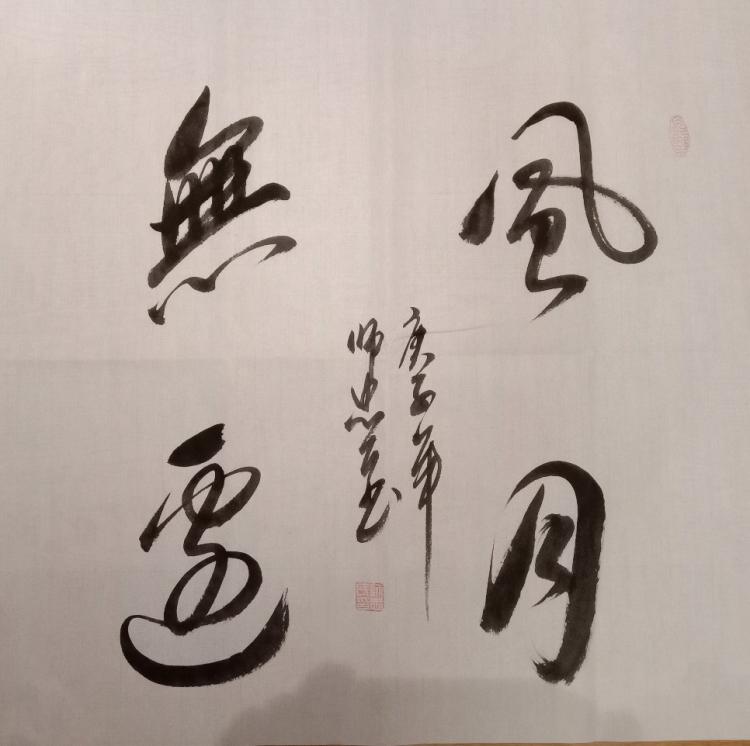 風月
無邊
庚子年
师忠书